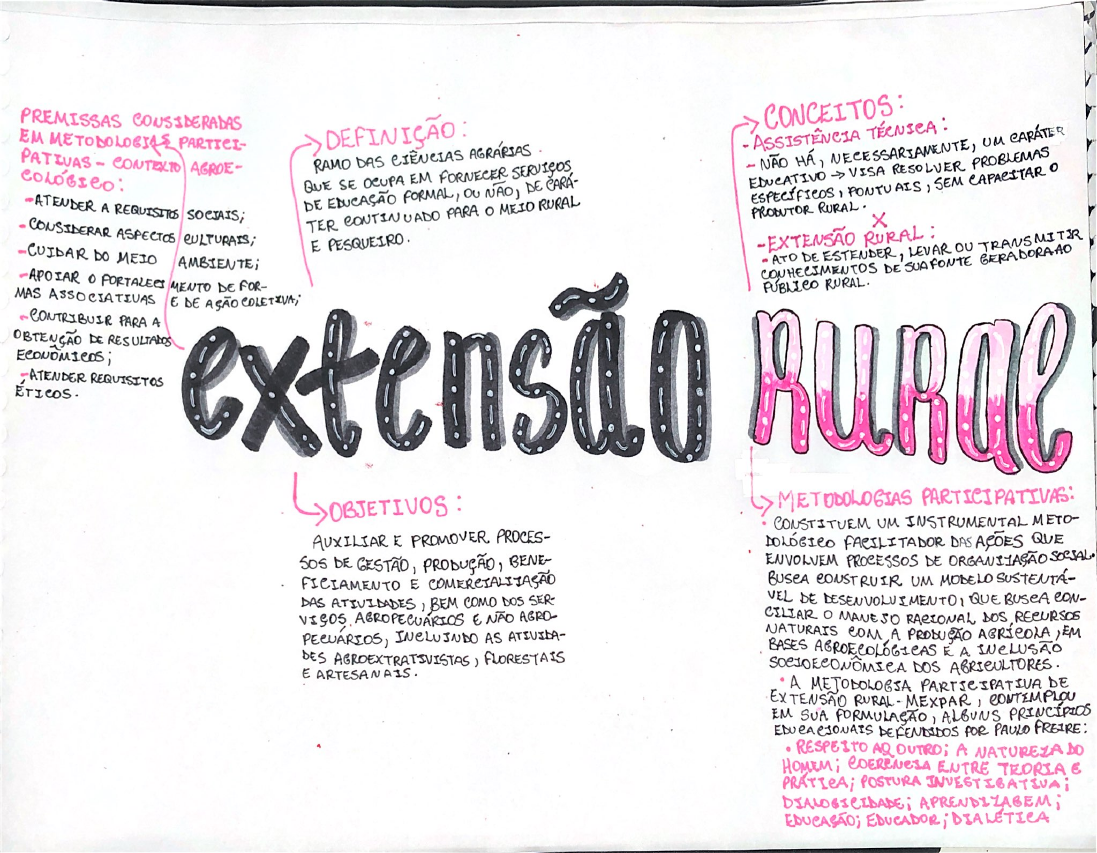 PREMISSAS CONSIDERADAS
EM METODOLOGIAS PARTICI-
PATIVAS - CONTEXTO AGROE-
COLÓGICO:
- ATENDER A REQUISITOS SOCIAIS;
- CONSIDERAR ASPECTOS CULTURAIS;
- CUIDAR DO MEIO AMBIENTE;
- APOIAR O FORTALECIMENTO DE FOR-
MAS ASSOCIATIVAS E DE AÇÃO COLETIVA;
- CONTRIBUIR PARA A
OBTENÇÃO DE RESULTADOS
ECONÔMICOS;
- ATENDER REQUISITOS
ÉTICOS.
DEFINIÇÃO:
RAMO DAS CIÊNCIAS AGRÁRIAS
QUE SE OCUPA EM FORNECER SERVIÇOS
DE EDUCAÇÃO FORMAL, OU NÃO, DE CARÁ-
TER CONTINUADO PARA O MEIO RURAL
E PESQUEIRO.
CONCEITOS:
- ASSISTÊNCIA TÉCNICA:
- NÃO HÁ, NECESSARIAMENTE, UM CARÁTER
EDUCATIVO → VISA RESOLVER PROBLEMAS
ESPECÍFICOS, PONTUAIS, SEM CAPACITAR O
PRODUTOR RURAL.
X
- EXTENSÃO RURAL:
- ATO DE ESTENDER, LEVAR OU TRANSMITIR
CONHECIMENTOS DE SUA FONTE GERADORA AO
PÚBLICO RURAL.
extensão RURAL
OBJETIVOS:
AUXILIAR E PROMOVER PROCES-
SOS DE GESTÃO, PRODUÇÃO, BENE-
FICIAMENTO E COMERCIALIZAÇÃO
DAS ATIVIDADES, BEM COMO DOS SER-
VIÇOS AGROPECUÁRIOS E NÃO AGRO-
PECUÁRIOS, INCLUINDO AS ATIVIDA-
DES AGROEXTRATIVISTAS, FLORESTAIS
E ARTESANAIS.
METODOLOGIAS PARTICIPATIVAS:
• CONSTITUEM UM INSTRUMENTAL METO-
DOLÓGICO FACILITADOR DAS AÇÕES QUE
ENVOLVEM PROCESSOS DE ORGANIZAÇÃO SOCIAL.
BUSCA CONSTRUIR UM MODELO SUSTENTÁ-
VEL DE DESENVOLVIMENTO, QUE BUSCA CON-
CILIAR O MANEJO RACIONAL DOS RECURSOS
NATURAIS COM A PRODUÇÃO AGRÍCOLA, EM
BASES AGROECOLÓGICAS E A INCLUSÃO
SOCIOECONÔMICA DOS AGRICULTORES.
• A METODOLOGIA PARTICIPATIVA DE
EXTENSÃO RURAL-MEXPAR, CONTEMPLOU
EM SUA FORMULAÇÃO, ALGUNS PRINCÍPIOS
EDUCACIONAIS DEFENDIDOS POR PAULO FREIRE:
• RESPEITO AO OUTRO; A NATUREZA DO
HOMEM; COERÊNCIA ENTRE TEORIA E
PRÁTICA; POSTURA INVESTIGATIVA;
DIALOGICIDADE; APRENDIZAGEM;
EDUCAÇÃO; EDUCADOR; DIALÉTICA